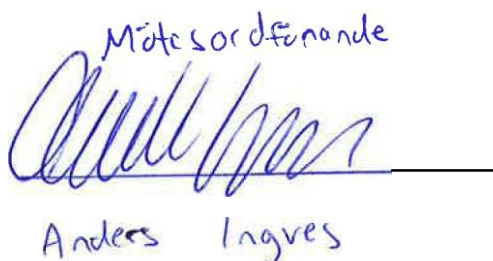 Mötesordförande
Anders Ingves